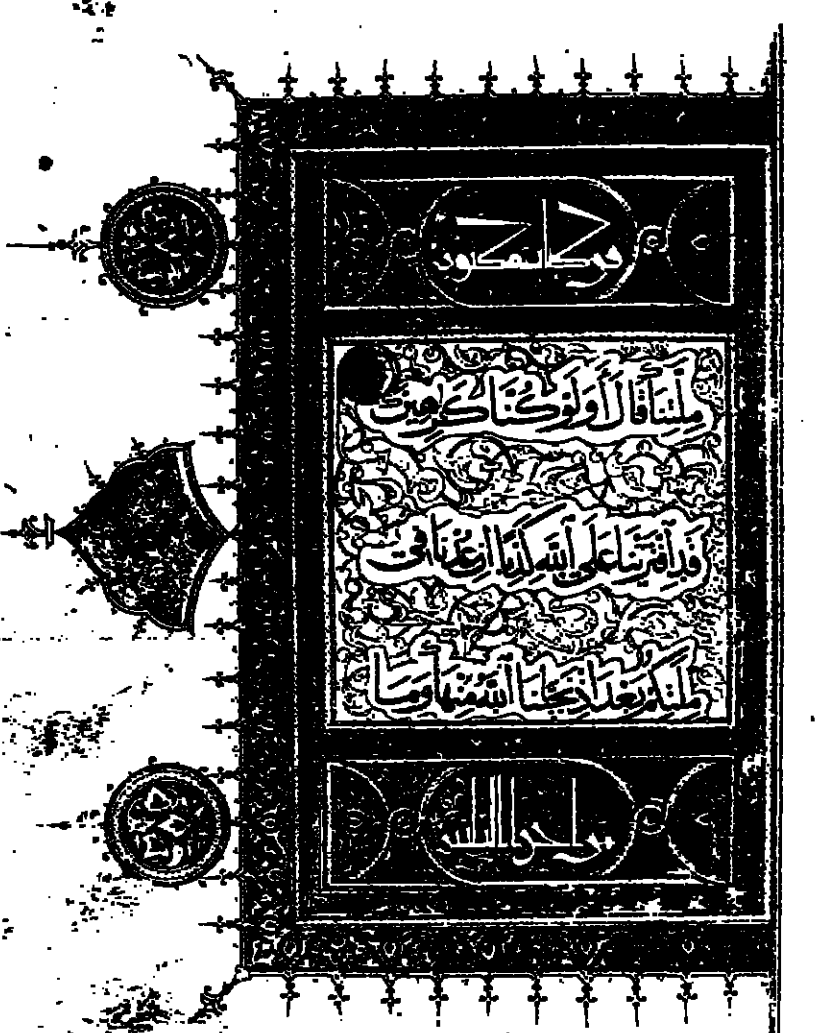 في كتاب مكنون
مِلَّتِنَا قَالَ أَوَلَوْ كُنَّا كَرِهِينَ
قَدِ ٱفْتَرَيْنَا عَلَى ٱللَّهِ كَذِبًا إِنْ عُدْنَا فِي
مِلَّتِكُمْ بَعْدَ إِذْ نَجَّىٰنَا ٱللَّهُ مِنْهَا وَمَا